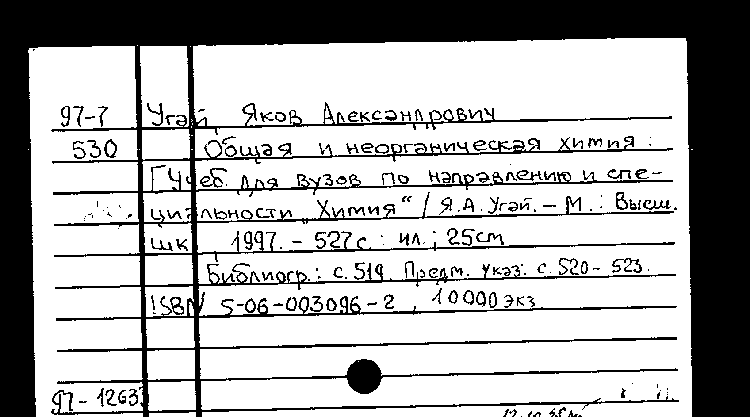 97-7 Угай, Яков Александрович
530 Общая и неорганическая химия :
[Учеб. для вузов по направлению и спе-
циальности „Химия“ / Я.А. Угай. – М. : Высш.
шк., 1997. – 527 с. : ил. ; 25 cm
Библиогр.: с. 519. Предм. указ.: с. 520 – 523.
ISBN 5-06-003096-2, 10000 экз
97-1263